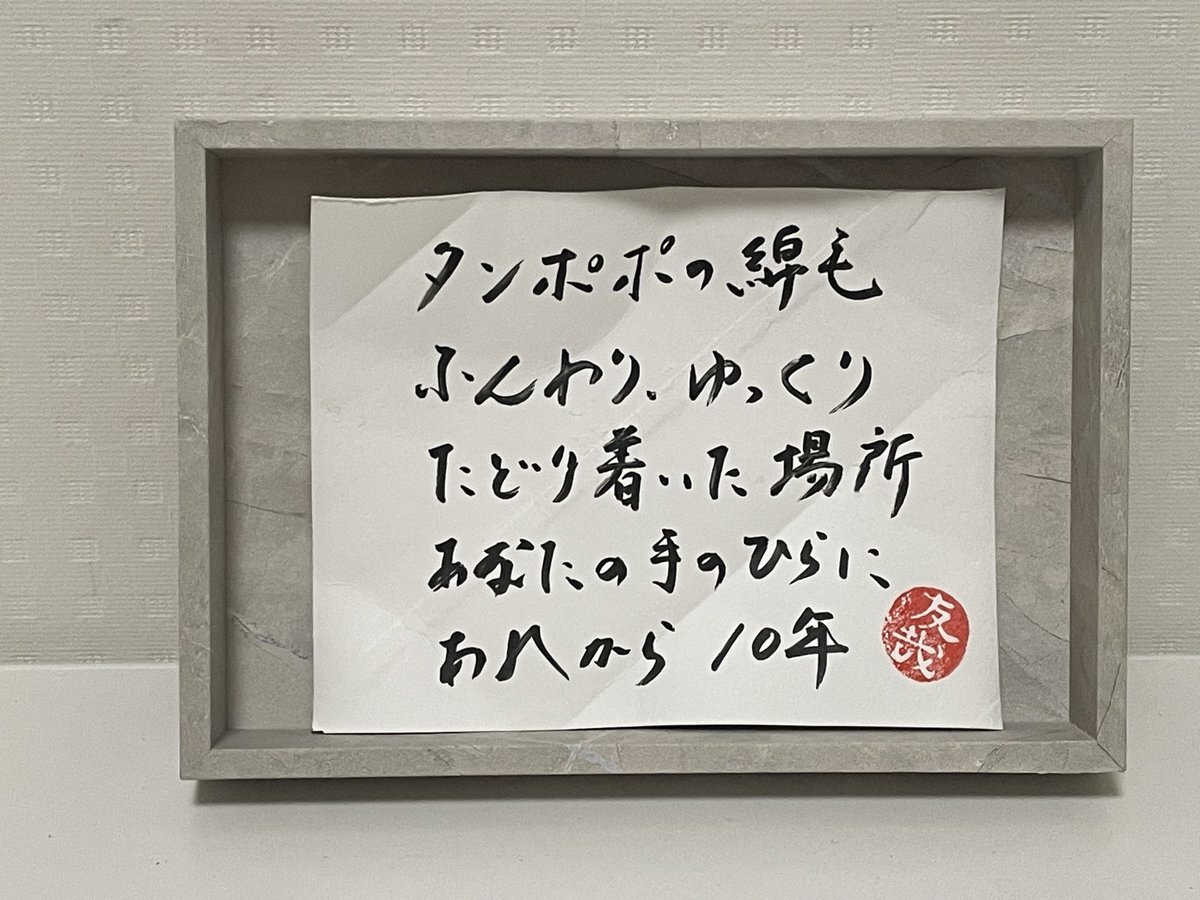 タンポポの綿毛
ふんわり、ゆっくり
たどり着いた場所
あなたの手のひらに
あれから10年
友哉